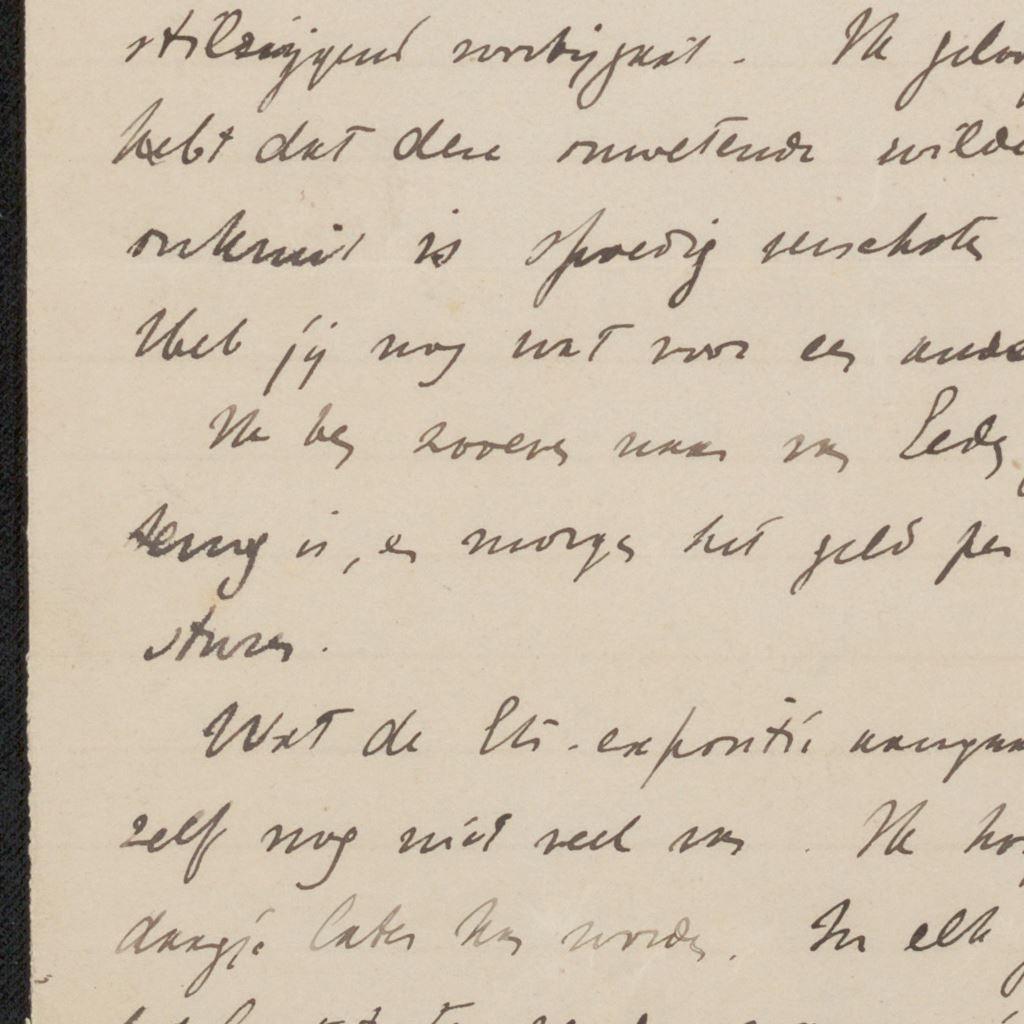 stilzwijgend voorbijgaat. Ik geloo
hebt dat deze onwetende wilde
onkruid is spoedig verschote
Heb jij nog wat voor een ande
Ik ben zooeven naar van Eeden
terug is, en morgen het geld per
sturen.
Wat de Ets-expositie aangaa
zelf nog niet veel van. Ik ho
daagje later kan worden. In elk